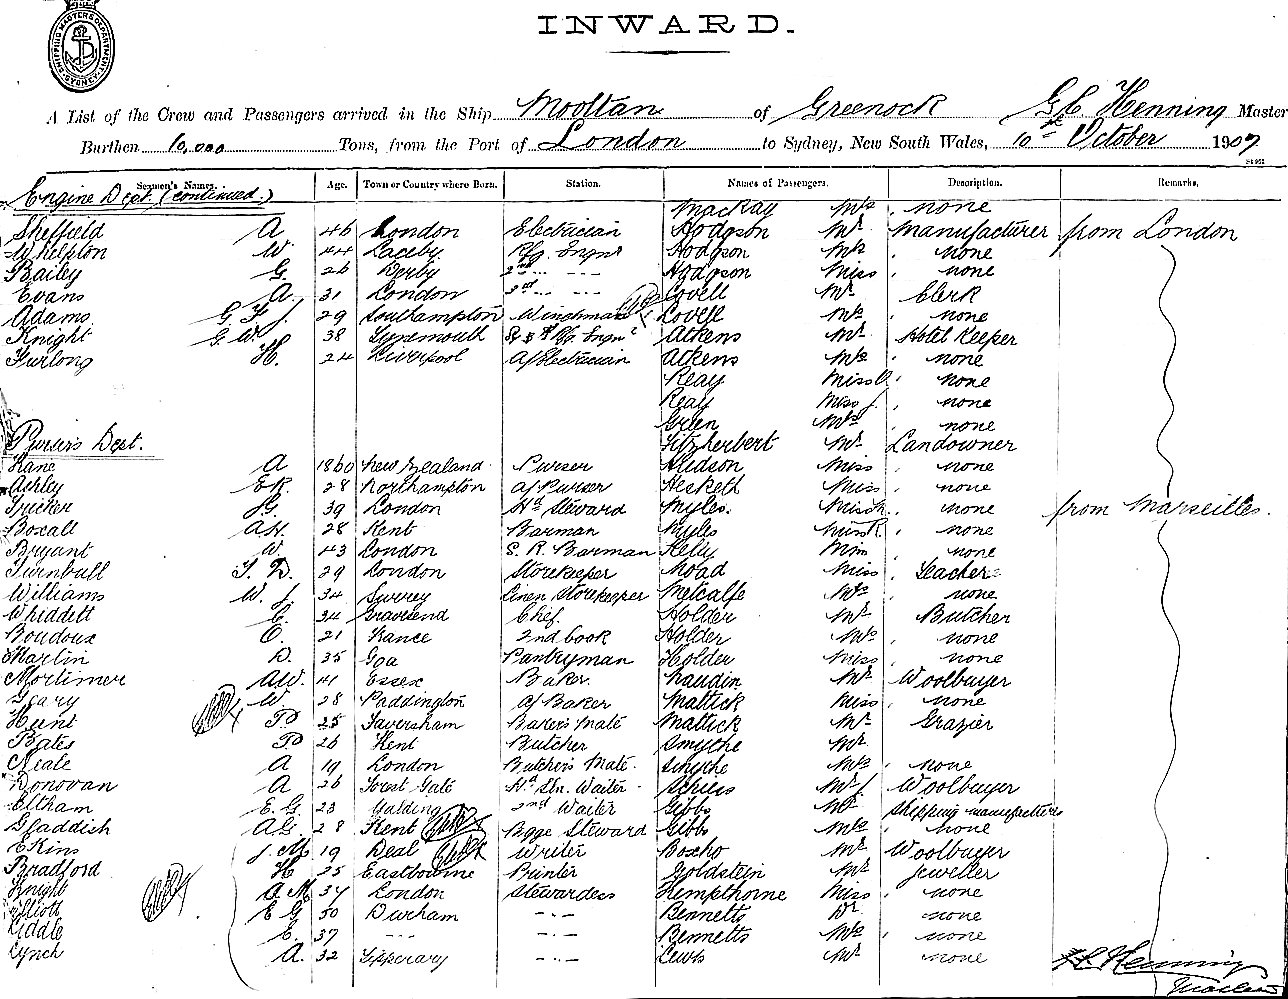 SHIPPING MASTERS DEPARTMENT SYDNEY
INWARD.
A List of the Crew and Passengers arrived in the Ship Mooltan of Greenock G C Henning Master
Burthen 10,000 Tons, from the Port of London to Sydney, New South Wales, 10th October 1907
Seamen's Names. Age. Town or Country where Born. Station. Names of Passengers. Description. Remarks.
Engine Dept. (continued.) Mackay Mrs none
Sheffield A 46 London Electrician Hodgson Mr Manufacturer from London
Whelpton W. 44 Laceby Rfg Engnr Hodgson Mrs none
Bailey G. 26 Derby 2nd " --- Hodgson Miss none
Evans A. 31 London 3rd " --- Covell Mr Clerk
Adams G F J. 29 Southampton Winchman Covell Mrs none
Knight G. W. 38 Tynemouth Rfg Engnr Atkens Mr Hotel Keeper
Furlong H. 24 Liverpool A/Electrician Atkens Mrs none
Reay Miss none
Reay Miss J. none
Green Mrs none
Purser's Dept. Fitzherbert Mr Landowner
Kane A 1860 New Zealand Purser Hudson Miss none
Ashby ER. 28 Northampton A/Purser Hesketh Miss none
Tricker G. 39 London Hd Steward Myles. Miss none from Marseilles.
Boxall AH. 28 Kent Barman Myles Miss R. none
Bryant W 43 London S. R. Barman Kelly none
Turnbull T. D. 29 London Storekeeper Moad Miss Teacher
Williams W. J. 34 Surrey Linen Storekeeper Metcalfe Mrs none
Whiddett C. 34 Gravesend Chef. Holder Mr Butcher
Boudoux O. 21 France 2nd Cook Holder Mrs none
Martin D. 35 Goa Pantryman Holder Miss none
Mortimer AW. 41 Essex Baker Naudin Mr Woolbuyer
Geary W. 28 Paddington A/Baker Mattick Miss none
Hunt P 25 Faversham Baker's Mate Mattick Mr Grazier
Bates P 26 Kent Butcher Smythe Mr
Neale A 19 London Butcher's Mate. Smythe Mrs none
Donovan A 26 Forest Gate Hd Stn. Waiter Schiess Mr J Woolbuyer
Eltham E G 23 Yalding 2nd Waiter Gibbs Mr Shipping manufacturer
Gladdish AG. 28 Kent Bgge Steward Gibbs Mrs none
Ekins J. M. 19 Deal Writer Boscho Mr Woolbuyer
Bradford H 25 Eastbourne Printer Goldstein Mr Jeweller
Knight A M 34 London Stewardess Hempthorne Miss none
Elliott E G 50 Durham -.- Bennetts Dr none
Liddle E. 37 --- -.- Bennetts Mrs none
Lynch A. 32 Tipperary -.- Lewis Mr none G C Henning
Master